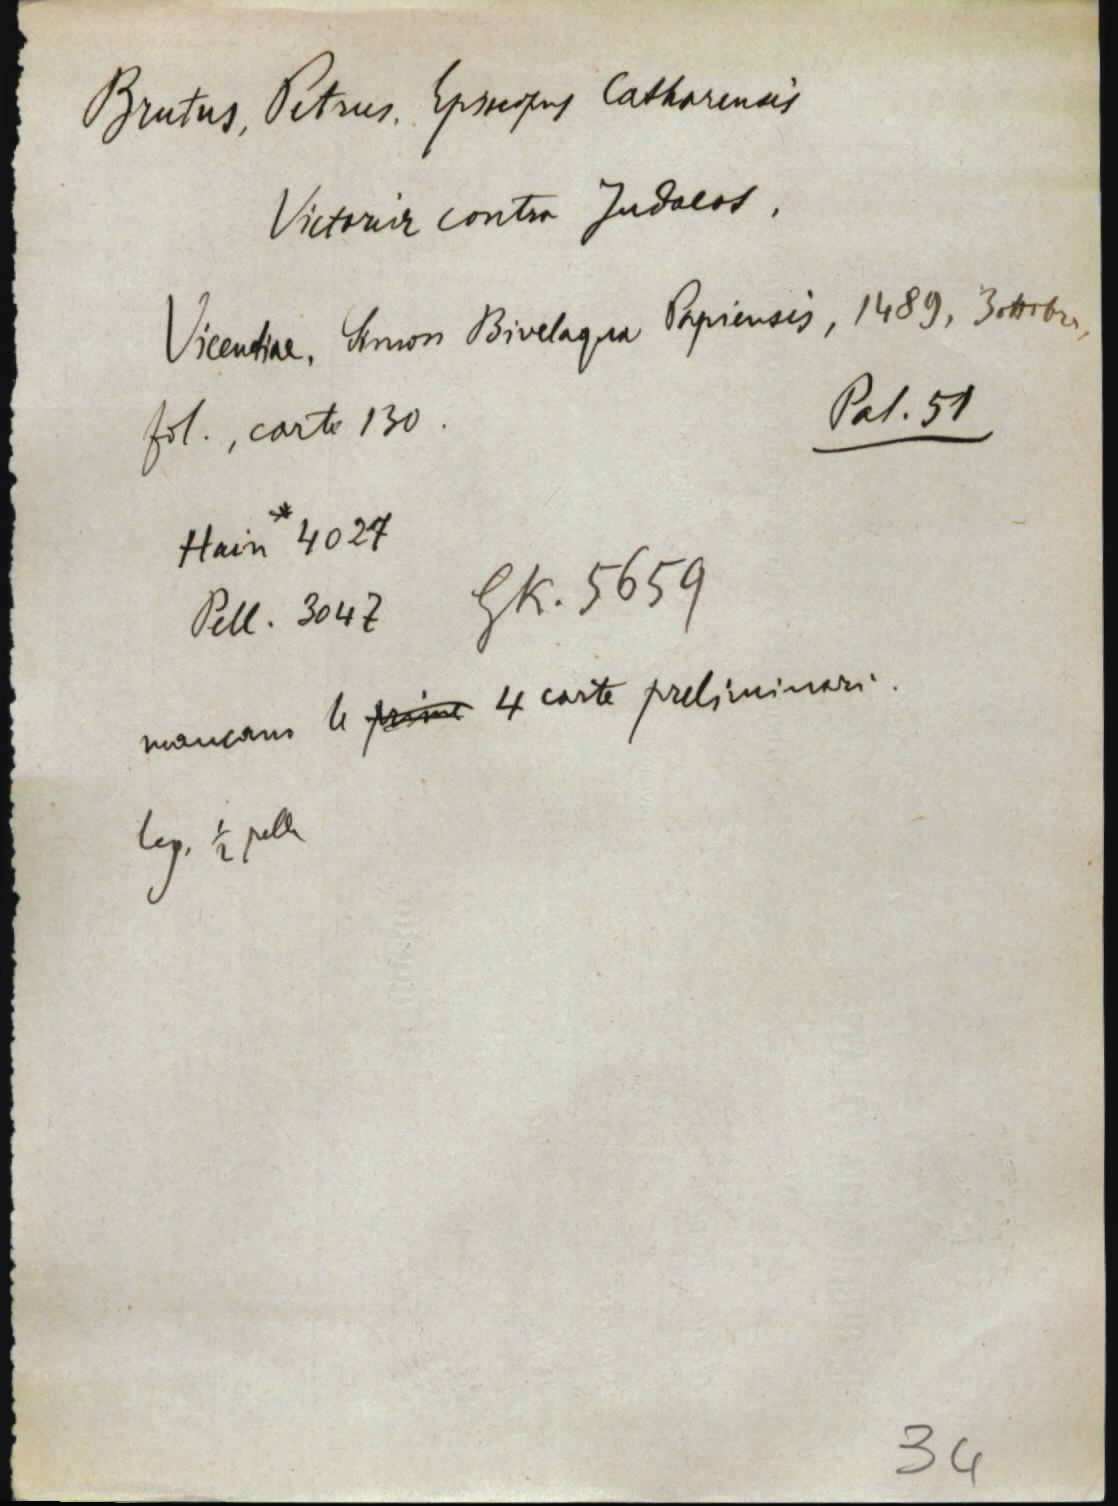 Brutus, Petrus. Episcopus Catharensis
Victoria contra Judaeos.
Vicentiae, Simon Bivelaqua Papiensis, 1489, 3 ottobre,
fol., carte 130.
Pal. 51
Hain* 4027
Pell. 3047
GK. 5659
mancano le prime 4 carte preliminari.
leg. ½ pelle
34